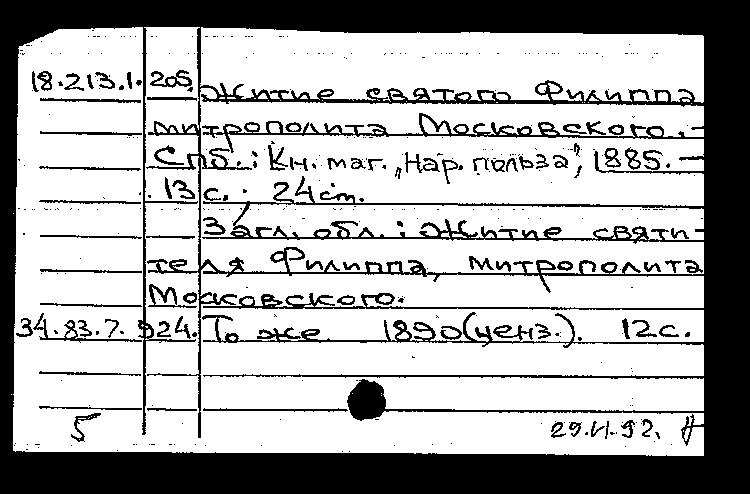 18.213.1.205. Житие святого Филиппа
митрополита Московского. –
Спб.: Кн. маг. „Нар. польза", 1885. –
13 с.; 24 cm.
Загл. обл.: Житие святи-
теля Филиппа, митрополита
Московского.
34.83.7.924. То же 1890 (ценз.). 12 с.
5 29.VI.92.